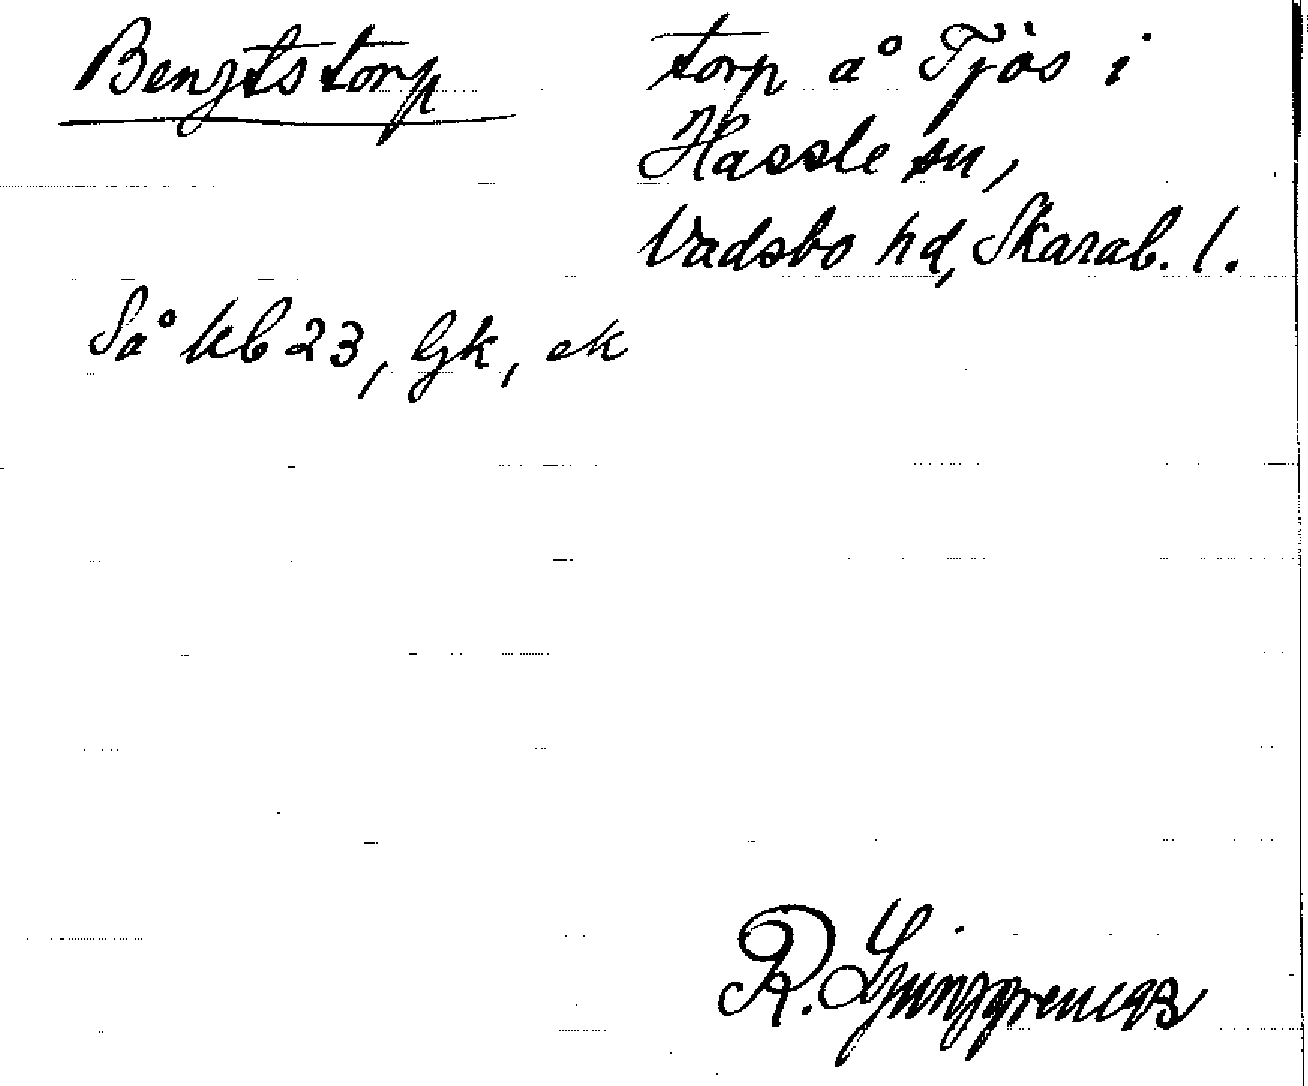 Bengtstorp
torp å Tjös i
Hassle sn,
Vadsbo hd, Skarab. l.
Så kb 23, Gk, ek
R. Ljunggren